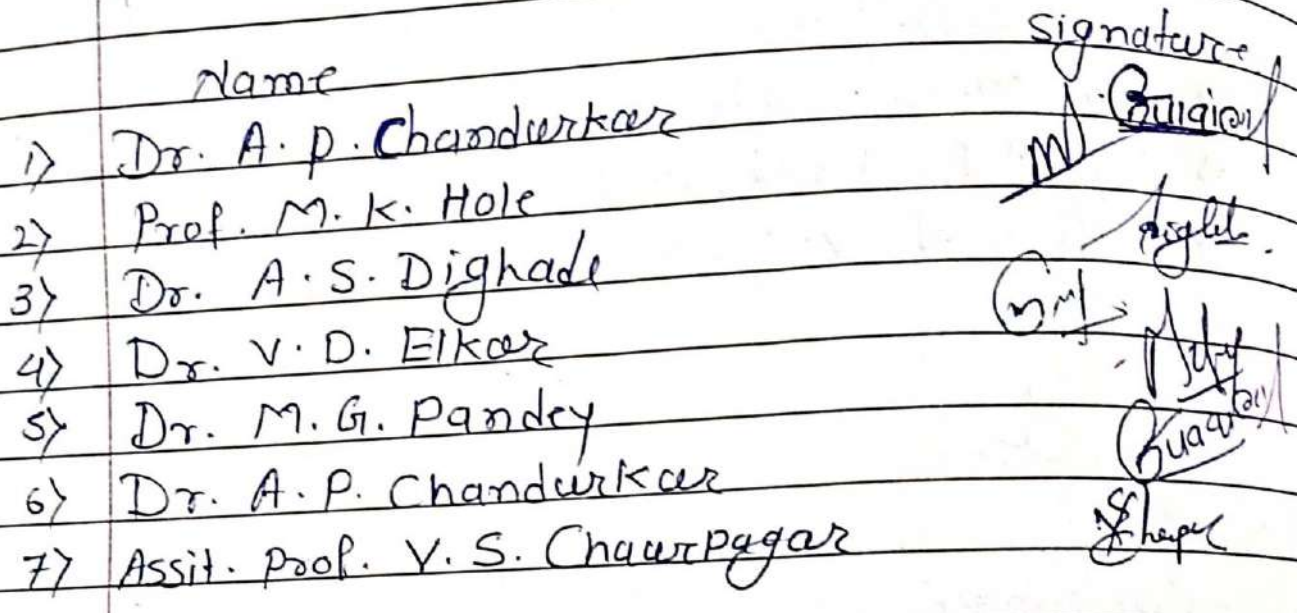 Name signature
1) Dr. A. P. Chandurkar
2) Prof. M. K. Hole
3) Dr. A. S. Dighade
4) Dr. V. D. Elkar
5) Dr. M. G. Pandey
6) Dr. A. P. Chandurkar
7) Assit. Prof. V. S. Chaurpagar